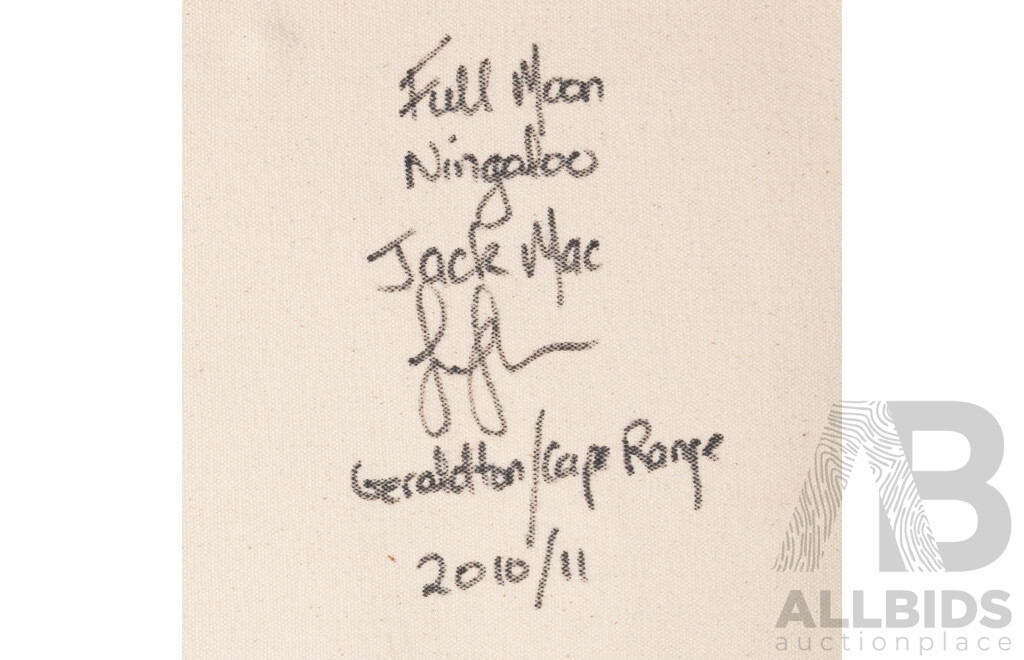 Full Moon
Ningaloo
Jack Mac
Geraldton/Cape Range
2010/11
AB
ALLBIDS
auctionplace